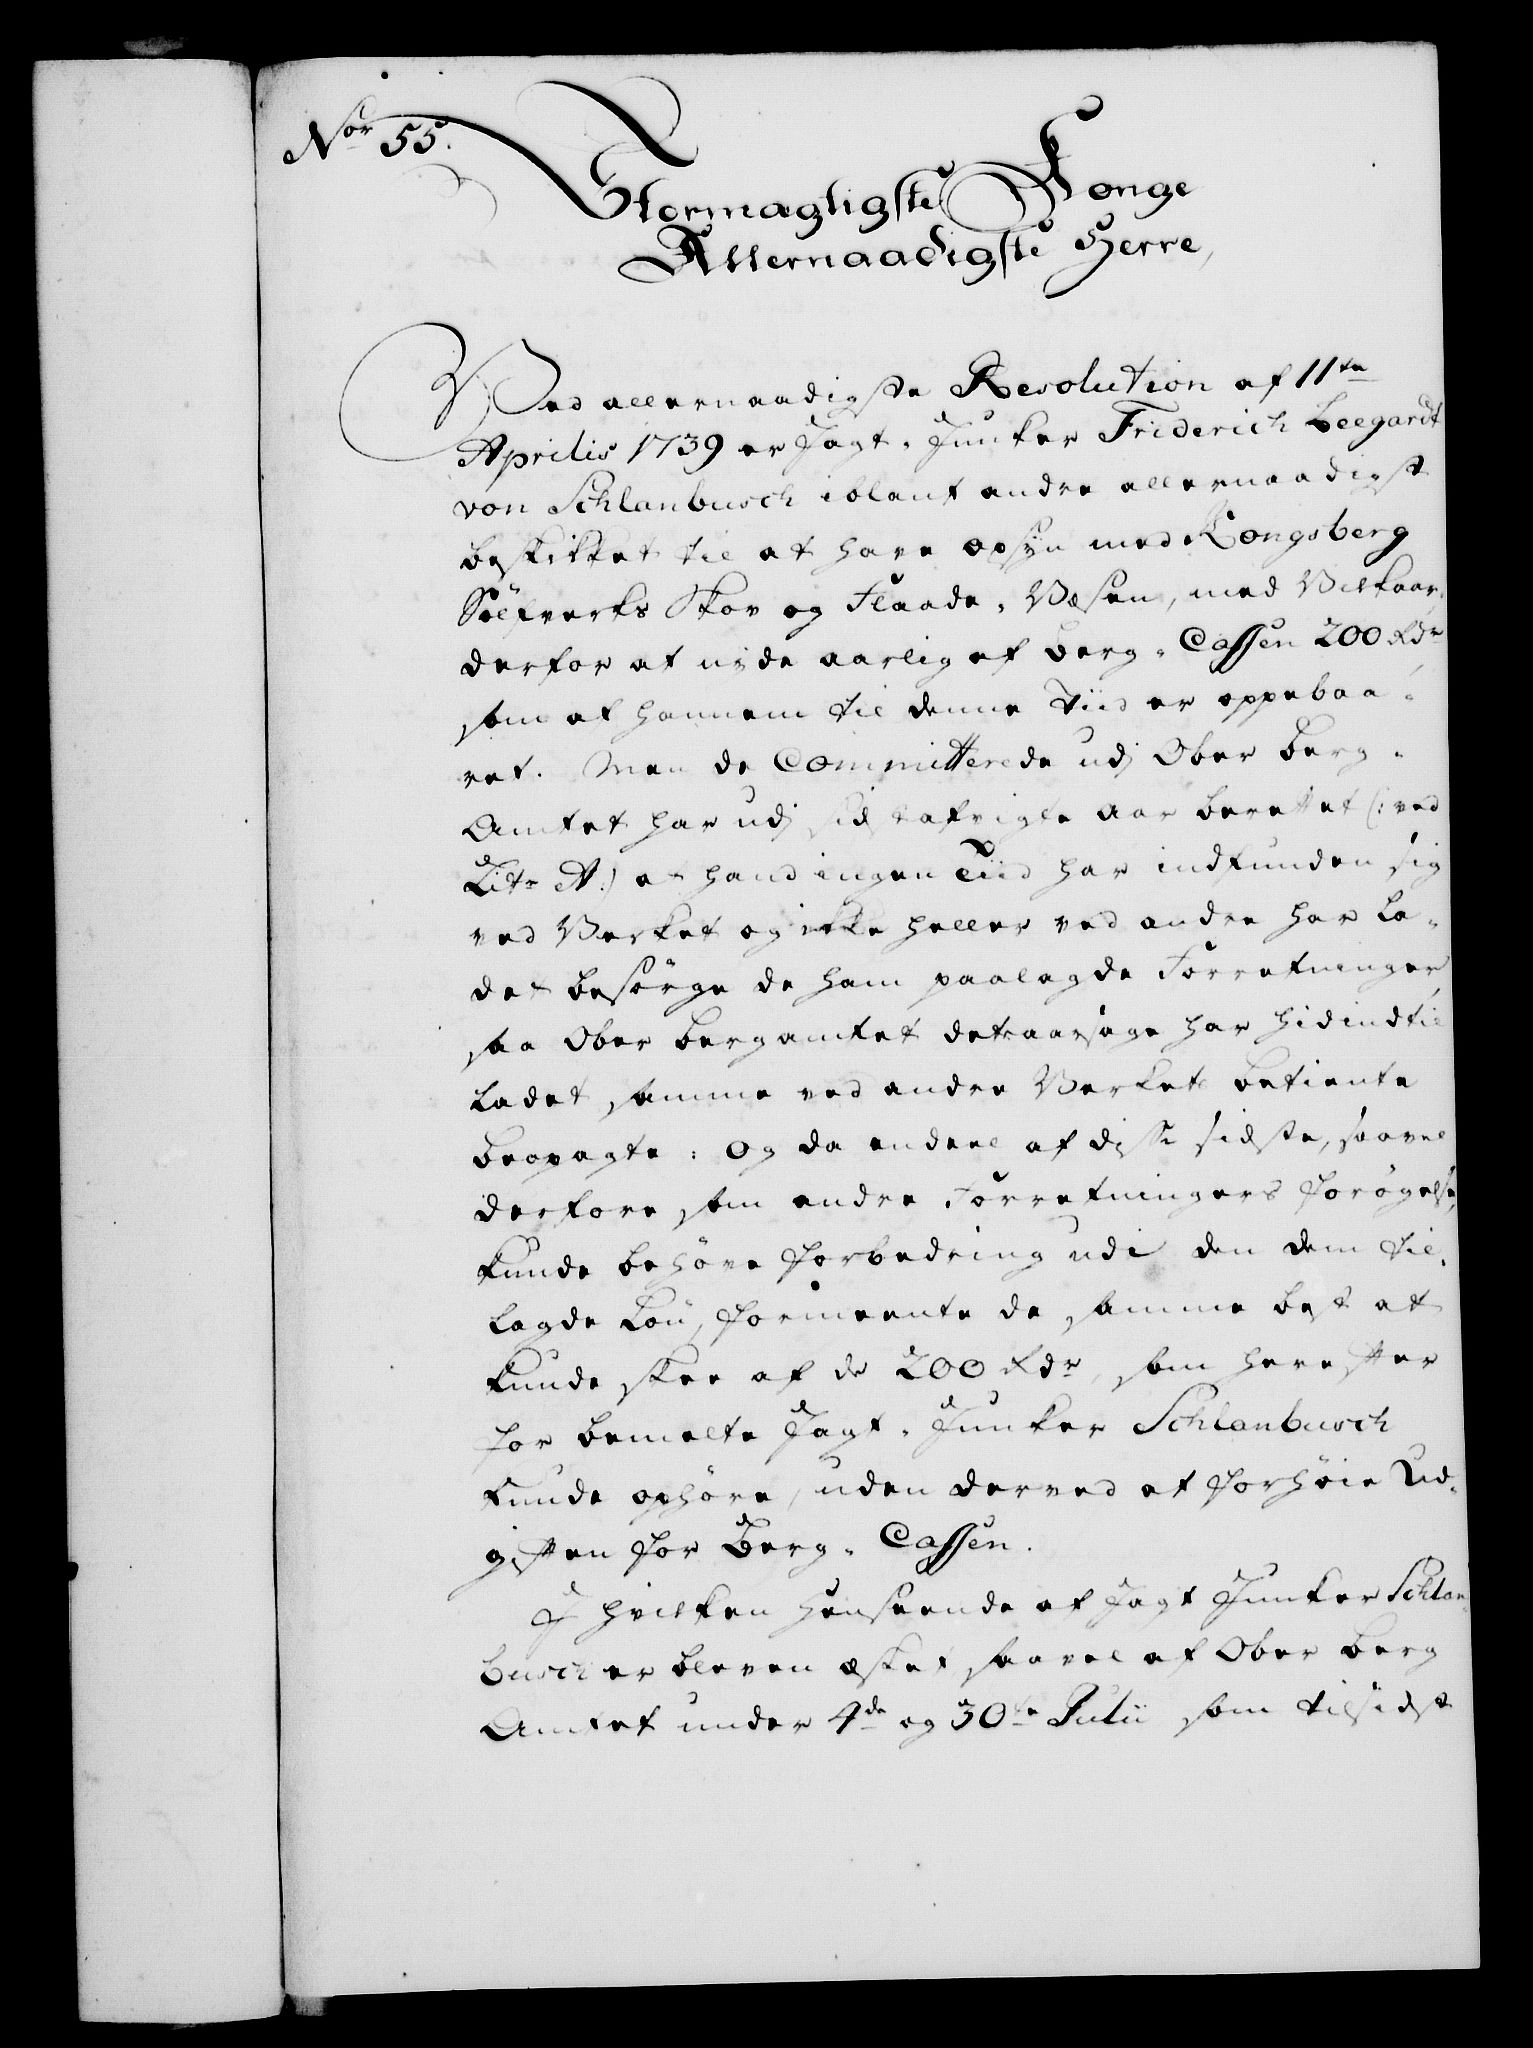 Nor 55.
Stormægtigste Konge
Allernaadigste Herre,
Ved allernaadigste Resolution af 11te
Aprilis 1739 er Jagt-Junker Friderich Leegardt
von Schlanbusch iblant andre allernaadigst
beskikket til at have opsÿn med Kongsberg
Sölfverks Skov og Flaade-Væsen, med Vilkaar,
derfor at nÿde aarlig af Berg-Cassen 200 Rdr
som af hannem til denne Tiid er oppebaa-
ret. Men de Committerede udj Ober Berg-
Amtet har udj sidstafvigte Aar berettet (: ved
Litr A:) at hand ingen Tiid har indfunden sig
ved Verket og ikke heller ved andre har la-
det besörge de ham paalagde Forretninger,
saa Ober Bergamtet detaarsage har hidindtil
ladet samme ved andre Verkets betiente
beopagte: Og da endeel af disse sidste, saavel
derfore som andre Forretningers forögelse,
kunde behöve forbedring udi den dem til-
lagde Lön, formeente de samme best at
kunde skee af de 200 Rdr, som herefter
for bemelte Jagt-Junker Schlanbusch
kunde ophöre, uden derved at forhöie Ud-
giften for Berg-Cassen.
I hvilken henseende af Jagt Junker Schlan-
busch er bleven æsket saavel af Ober Berg
Amtet under 4de og 30te Julii som tilsidst